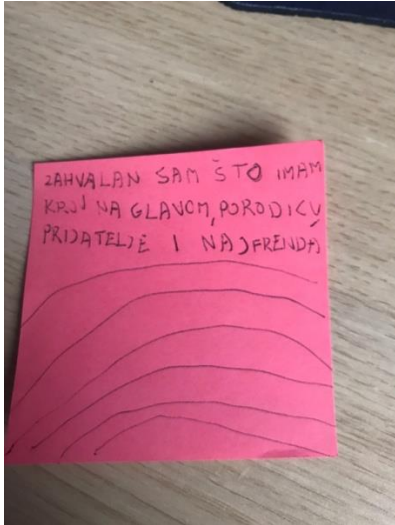 ZAHVALAN SAM ŠTO IMAM
NA GLAVOM, PORODICU
PRIJATELJE I NAJFRENDA